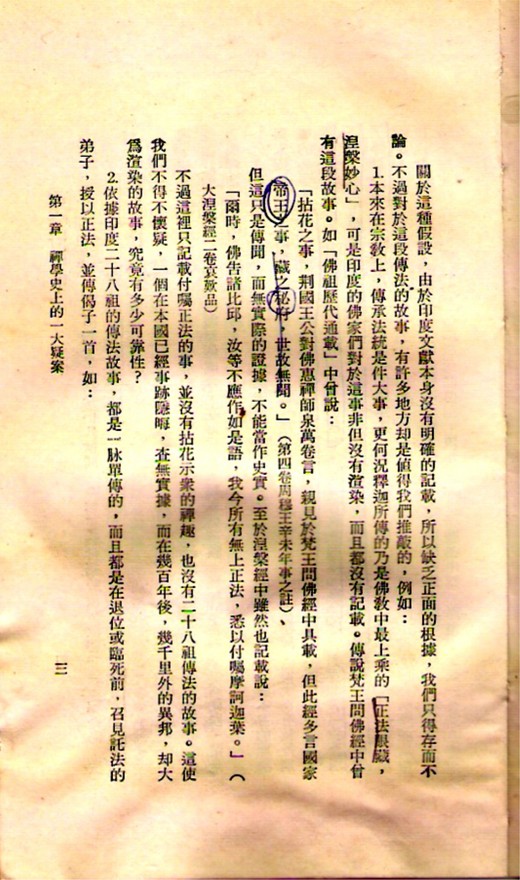 關於這種假設，由於印度文獻本身沒有明確的記載，所以缺乏正面的根據，我們只得存而不
論。不過對於這段傳法的故事，有許多地方却是值得我們推敲的，例如：
1.本來在宗教上，傳承法統是件大事，更何況釋迦所傳的乃是佛教中最上乘的「正法眼藏，
涅槃妙心」，可是印度的佛家們對於這事非但沒有渲染，而且都沒有記載。傳說梵王問佛經中曾
有這段故事。如「佛祖歷代通載」中曾說：
「拈花之事，荆國王公對佛惠禪師泉萬卷言，親見於梵王問佛經中具載，但此經多言國家
帝王之事，藏之秘府，世故無聞。」（第四卷周穆王辛未年事之註）、
但這只是傳聞，而無實際的證據，不能當作史實。至於涅槃經中雖然也記載說：
「爾時，佛告諸比邱，汝等不應作如是語，我今所有無上正法，悉以付囑摩訶迦葉。」（
大涅槃經二卷哀歎品）
不過這裡只記載付囑正法的事，並沒有拈花示衆的禪趣，也沒有二十八祖傳法的故事。這使
我們不得不懷疑，一個在本國已經事跡隱晦，查無實據，而在幾百年後，幾千里外的異邦，却大
爲渲染的故事，究竟有多少可靠性？
2.依據印度二十八祖的傳法故事，都是一脉單傳的，而且都是在退位或臨死前，召見託法的
弟子，授以正法，並傳偈子一首，如：
第一章　禪學史上的一大疑案
三